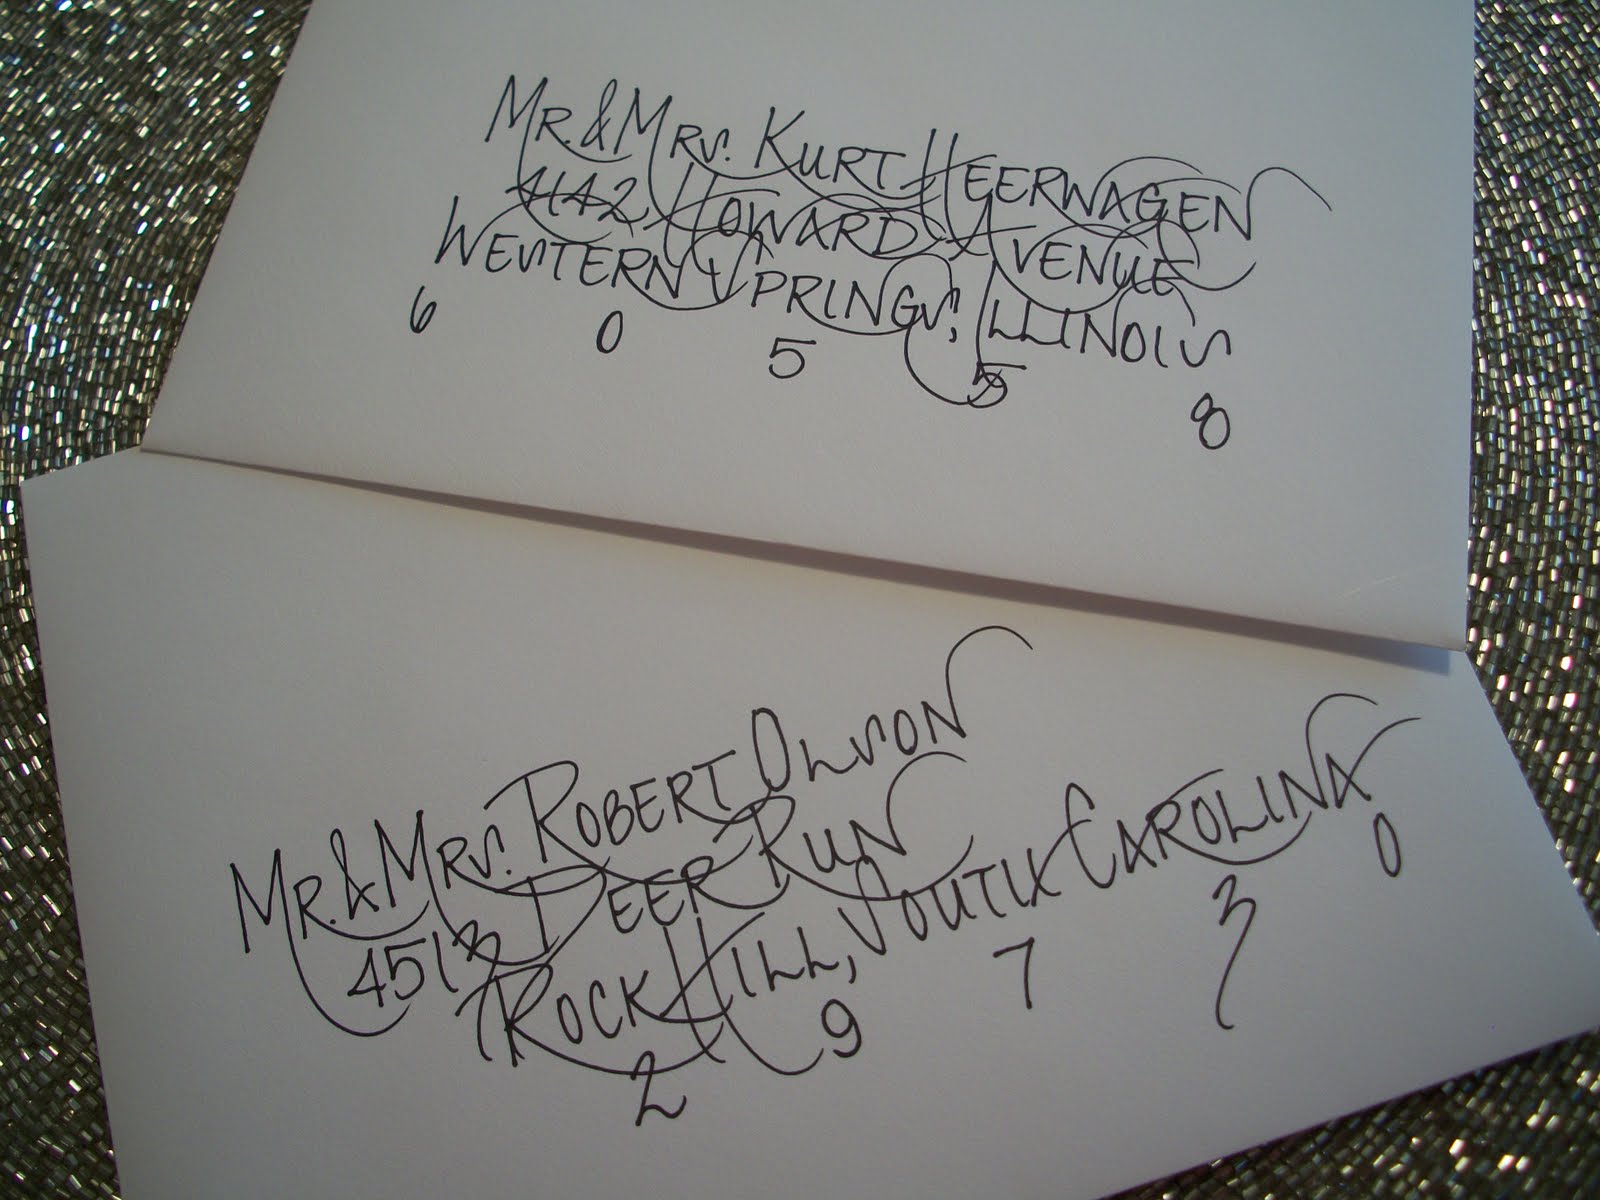 Mr. & Mrs. Kurt Heerwagen
4142 Howard Avenue
Western Springs, Illinois
6 0 5 5 8
Mr. & Mrs. Robert Olson
4513 Deer Run
Rock Hill, South Carolina
2 9 7 3 0